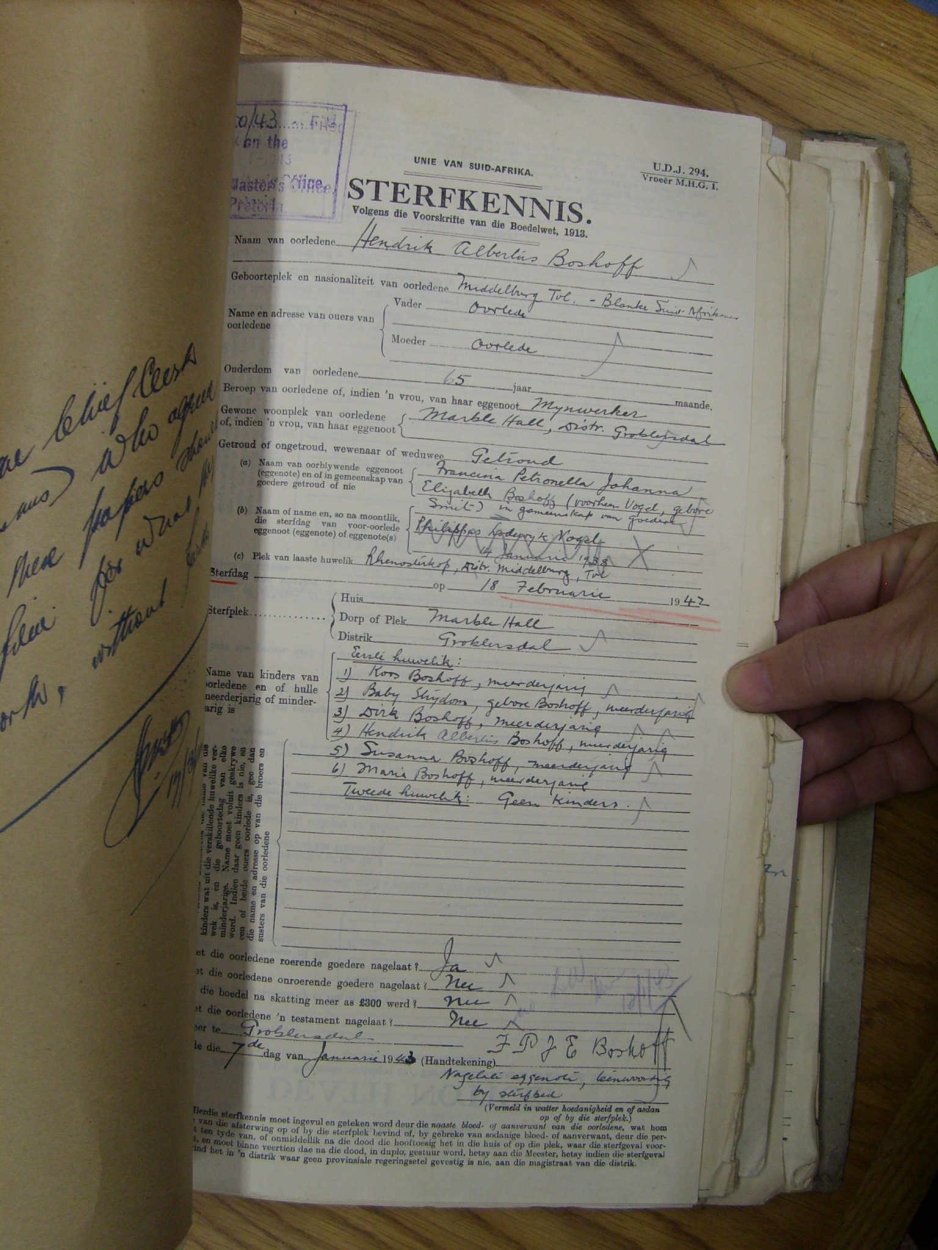 20/43
Filed
on the
Master's Office,
Pretoria
UNIE VAN SUID-AFRIKA.
U.D.J. 294.
Vroeër M.H.G. 1.
STERFKENNIS.
Volgens die Voorskrifte van die Boedelwet, 1913.
Naam van oorledene Hendrik Albertus Boshoff
Geboorteplek en nasionaliteit van oorledene Middelburg Tvl. - Blanke Suid-Afrikaner
Name en adresse van ouers van oorledene
Vader Oorlede
Moeder Oorlede
Ouderdom van oorledene 65 jaar maande.
Beroep van oorledene of, indien 'n vrou, van haar eggenoot Mynwerker
Gewone woonplek van oorledene of, indien 'n vrou, van haar eggenoot
Marble Hall, Distr. Groblersdal
Getroud of ongetroud, wewenaar of weduwee Getroud
(a) Naam van oorblywende eggenoot (eggenote) en of in gemeenskap van goedere getroud of nie
Francina Petronella Johanna
Elizabeth Boshoff (voorheen Vogel, gebore
Smit) in gemeenskap van goedere
(b) Naam of name en, so na moontlik, die sterfdag van voor-oorlede eggenoot (eggenote) of eggenote(s)
(c) Plek van laaste huwelik Rhenosterkop, Distr. Middelburg, Tvl
Sterfdag op 18 Februarie 1942
Sterfplek
Huis
Dorp of Plek Marble Hall
Distrik Groblersdal
Name van kinders van oorledene en of hulle meerderjarig of minderjarig is
Eerste huwelik:
1) Koos Boshoff, meerderjarig
2) Baby Strydom, gebore Boshoff, meerderjarig
3) Dirk Boshoff, meerderjarig
4) Hendrik Albertus Boshoff, meerderjarig
5) Susanna Boshoff, meerderjarig
6) Maria Boshoff, meerderjarig
Tweede huwelik: Geen kinders.
kinders wat uit die verskillende huwelike verwek is, en die geboortedag van elke minderjarige. Name moet voluit geskrywe word. Indien daar geen kinders is nie, en een of beide ouers oorlede is, gee dan die name en adresse op van die broers en susters van die oorledene
et die oorledene roerende goedere nagelaat? Ja
et die oorledene onroerende goedere nagelaat? Nee
die boedel na skatting meer as £300 werd? nee
et die oorledene 'n testament nagelaat? Nee
er te Groblersdal
le die 7de dag van Januarie 1943 (Handtekening) F P J E Boshoff
Nagelate eggenote, teenwoordig
by sterfbed
(Vermeld in watter hoedanigheid en of aldan
op of by die sterfplek.)
Hierdie sterfkennis moet ingevul en geteken word deur die naaste bloed- of aanverwant van die oorledene, wat hom
van die afsterwing op of by die sterfplek bevind of, by gebreke van sodanige bloed- of aanverwant, deur die per-
ten tyde van, of onmiddellik na die dood die hooftoesig het in die huis of op die plek, waar die sterfgeval voor-
en moet binne veertien dae na die dood, in duplo, gestuur word, hetsy aan die Meester, hetsy indien die sterfgeval
ind het in 'n distrik waar geen provinsiale regeringsetel gevestig is nie, aan die magistraat van die distrik.
chief clerk
who agree
these papers
for
without